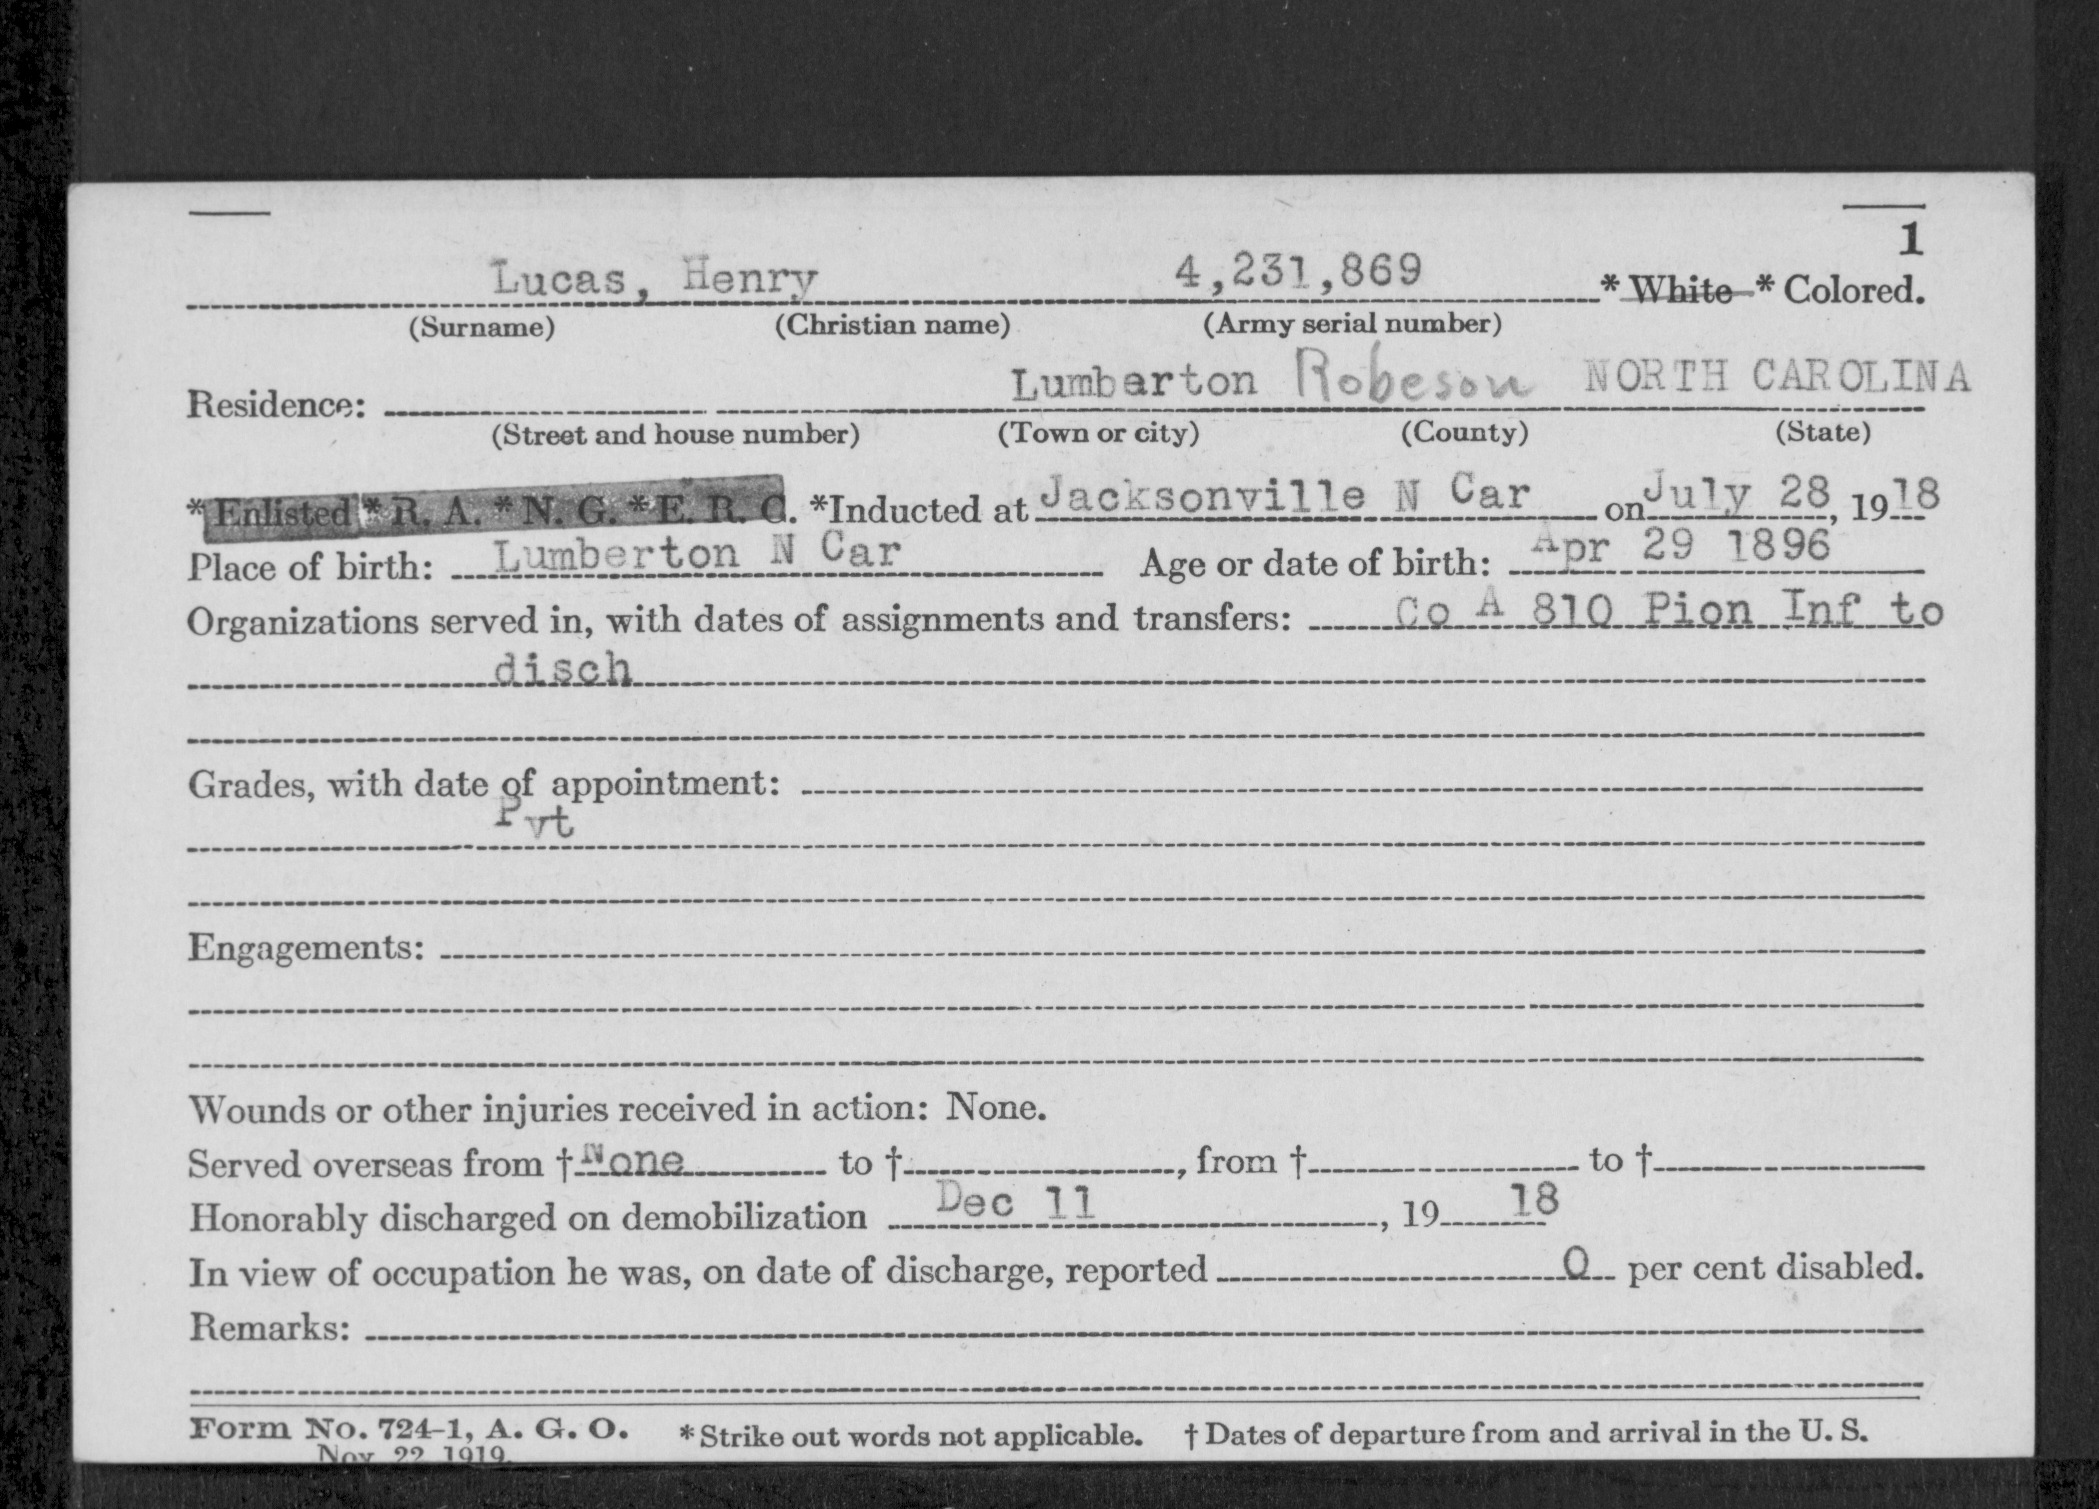 1
Lucas, Henry 4,231,869 * White * Colored.
(Surname) (Christian name) (Army serial number)
Residence: Lumberton Robeson NORTH CAROLINA
(Street and house number) (Town or city) (County) (State)
*Enlisted *R. A. *N. G. *E. R. C. *Inducted at Jacksonville N Car on July 28, 1918
Place of birth: Lumberton N Car Age or date of birth: Apr 29 1896
Organizations served in, with dates of assignments and transfers: Co A 810 Pion Inf to
disch
Grades, with date of appointment:
Pvt
Engagements:
Wounds or other injuries received in action: None.
Served overseas from † None to †, from † to †
Honorably discharged on demobilization Dec 11, 19 18
In view of occupation he was, on date of discharge, reported 0 per cent disabled.
Remarks:
Form No. 724-1, A. G. O. *Strike out words not applicable. † Dates of departure from and arrival in the U. S.
Nov 22 1919.